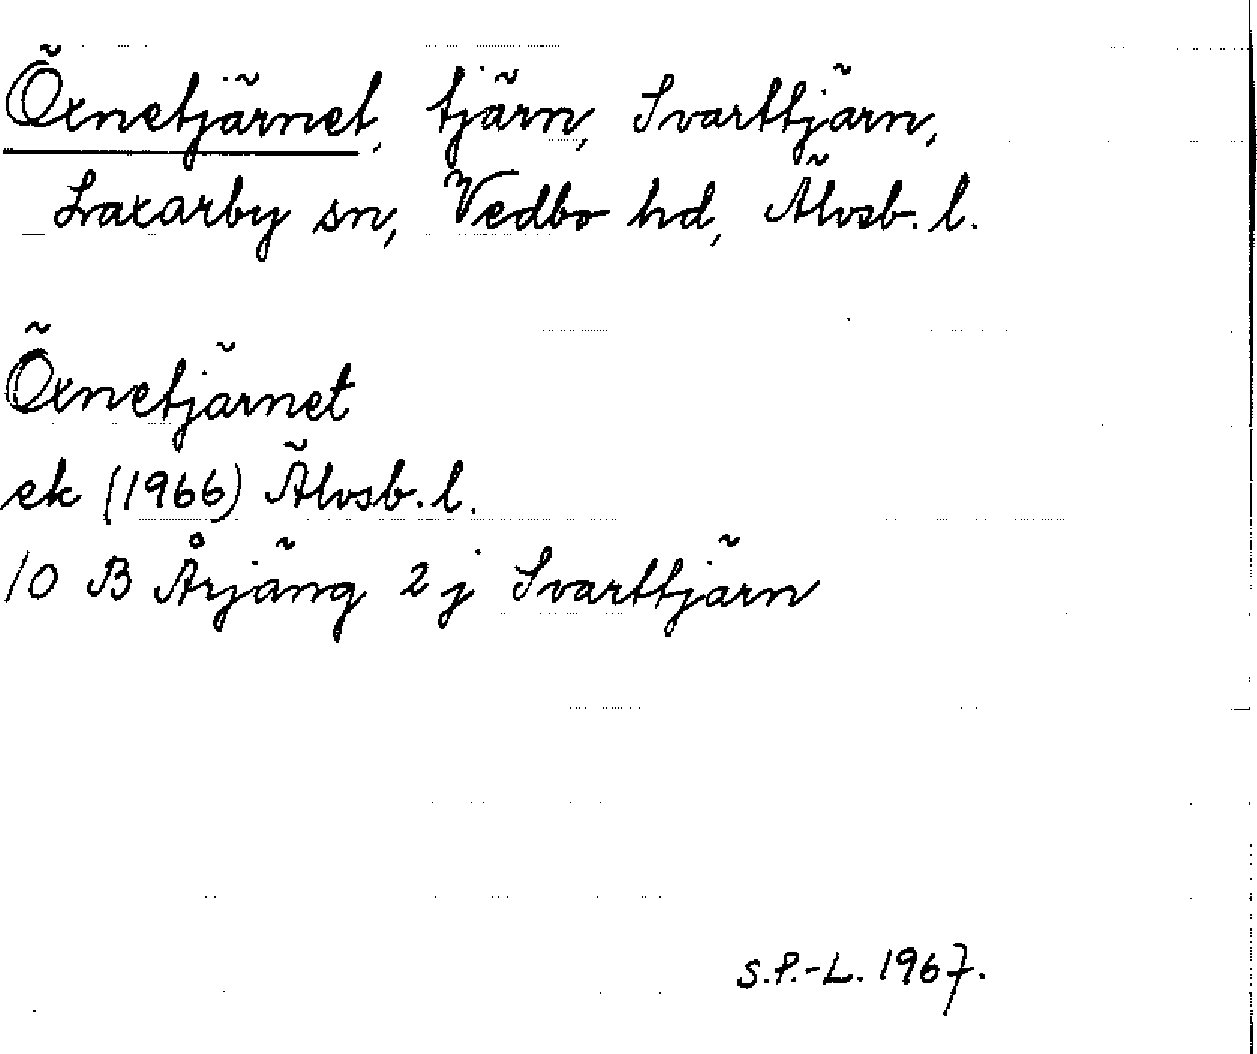 Öxnetjärnet, tjärn, Svarttjärn,
Laxarby sn, Vedbo hd, Älvsb. l.
Öxnetjärnet
ek (1966) Älvsb. l.
10 B Årjäng 2 j Svarttjärn
S.P.-L. 1967.